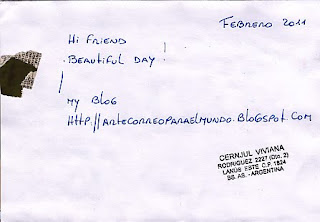 FEBRERO 2011
Hi FRIEND
BEAUTIFUL DAY !
MY BLOG
HTTP://ARTECORREOPARAELMUNDO.BLOGSPOT.COM
CERNJUL VIVIANA
RODRIGUEZ 2227 (Dto. 2)
LANUS ESTE C.P. 1824
BS. AS. - ARGENTINA